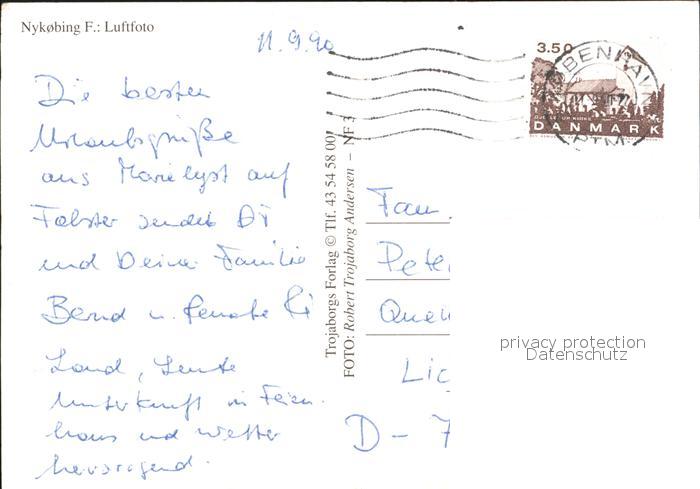 Nykøbing F.: Luftfoto
11.9.90
Die besten
Urlaubsgrüße
aus Marielyst auf
Falster sendet Dir
und Deiner Familie
Bernd u. Renate
Land, Leute
Unterkunft in Ferien-
haus und Wetter
hervorragend.
Trojaborgs Forlag © Tlf. 43 54 58 00
FOTO: Robert Trojaborg Andersen – NF 3
3.50
KØBENHAV
DANMARK
Fam.
Pete
Quen
Lic
D - 7
privacy protection
Datenschutz